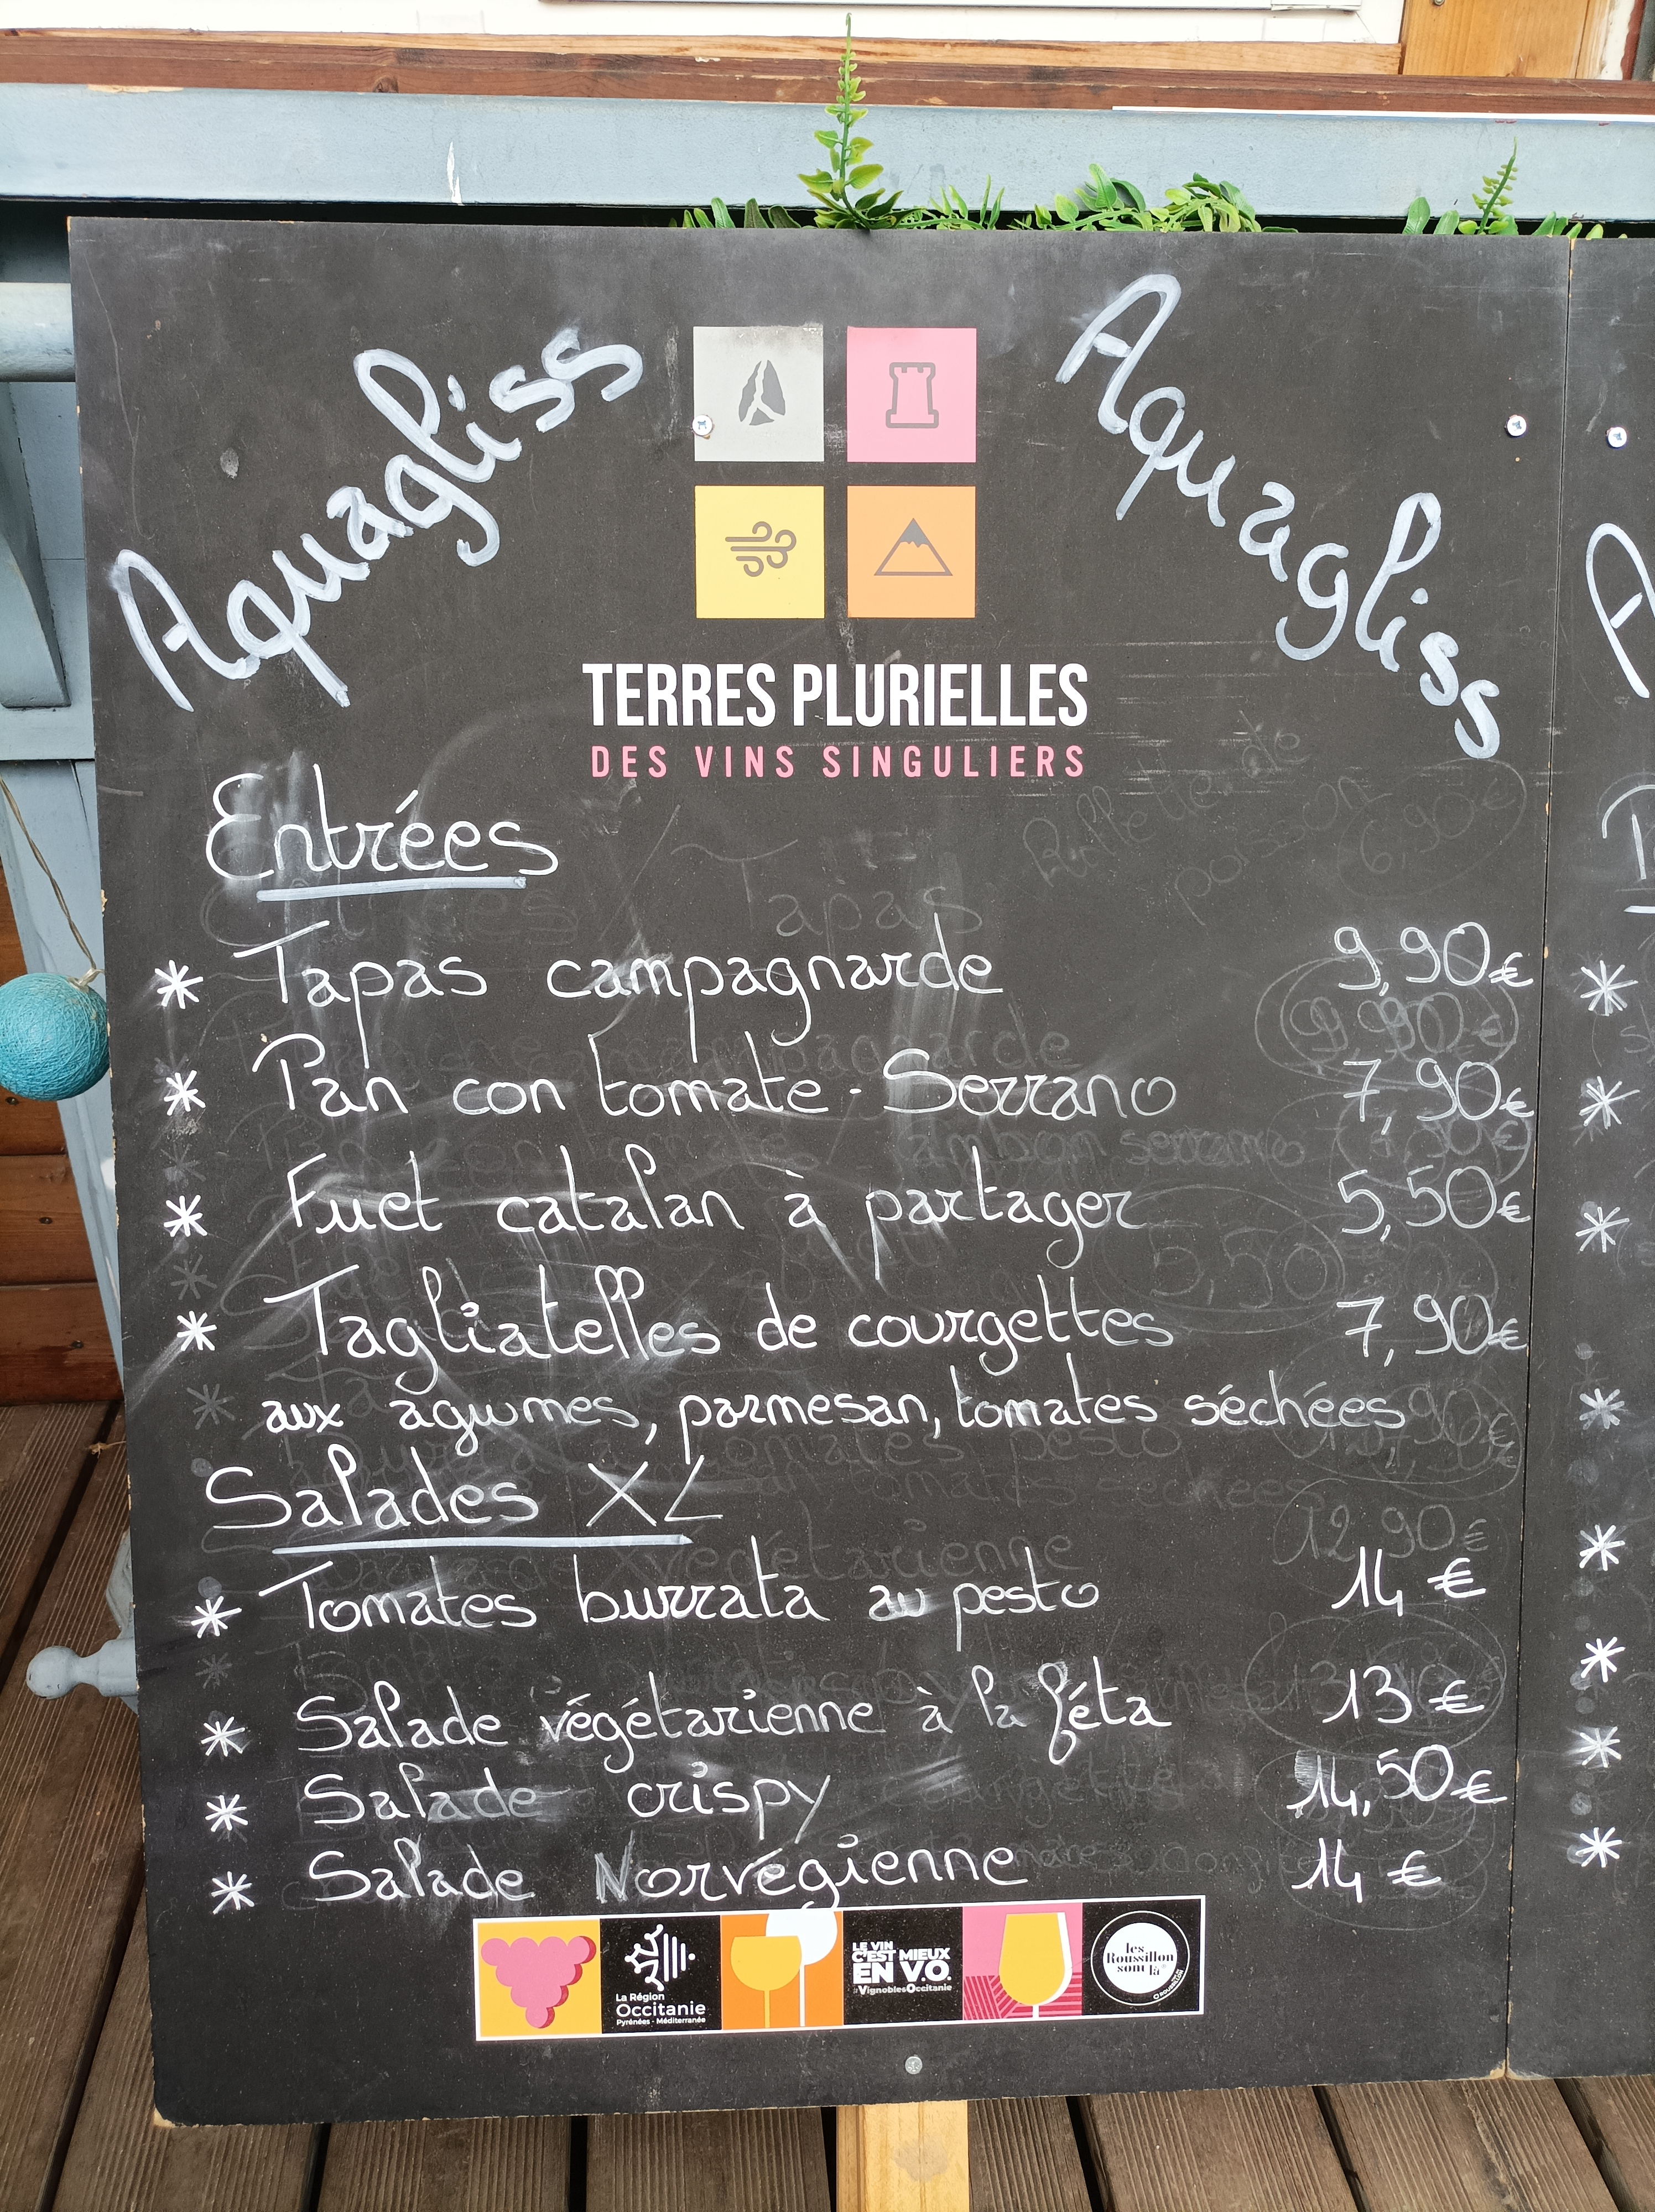 Aquagliss
Aquagliss
TERRES PLURIELLES
DES VINS SINGULIERS
Entrées
* Tapas campagnarde 9,90€
* Pan con tomate - Serrano 7,90€
* Fuet catalan à partager 5,50€
* Tagliatelles de courgettes 7,90€
aux agrumes, parmesan, tomates séchées
Salades XL
* Tomates burrata au pesto 14 €
* Salade végétarienne à la féta 13 €
* Salade crispy 14,50€
* Salade Norvégienne 14 €
La Région
Occitanie
Pyrénées - Méditerranée
LE VIN
C'EST MIEUX
EN V.O.
#VignoblesOccitanie
les
Roussillon
sont là